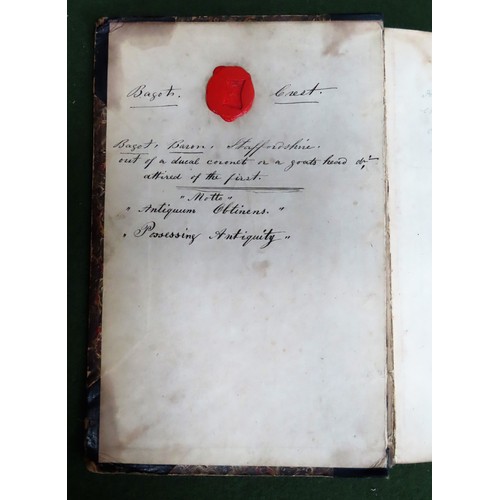 Bagot. Crest.
Bagot, Baron, Staffordshire.
out of a ducal coronet or a goats head
attired of the first.
"Motto"
"Antiquum Obtinens."
"Possessing Antiquity"